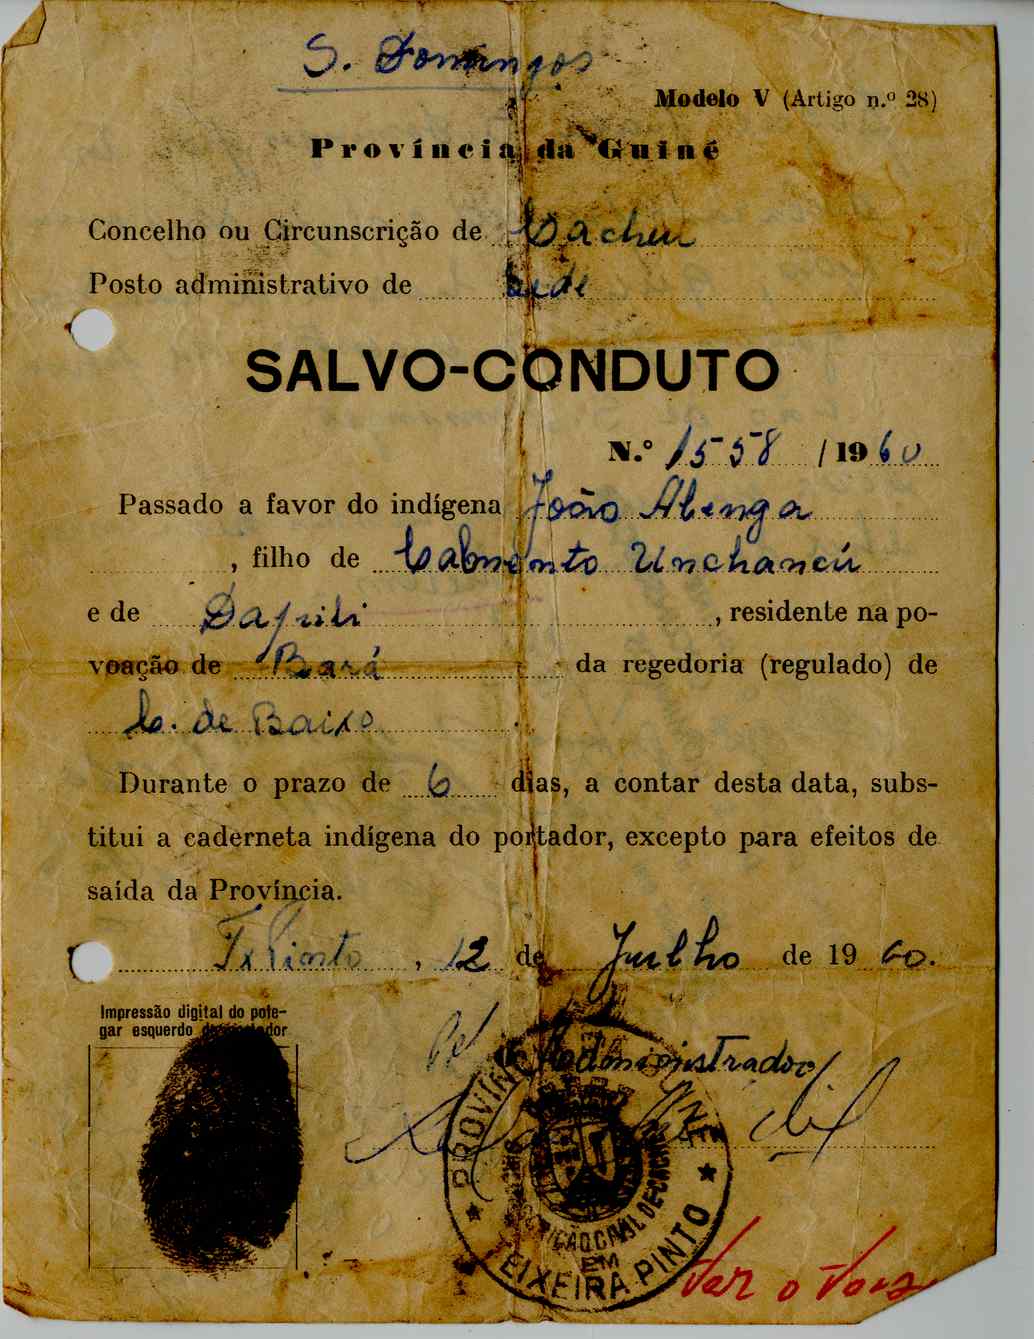 S. Domingos
Modelo V (Artigo n.º 28)
Província da Guiné
Concelho ou Circunscrição de Cacheu
Posto administrativo de Sede
SALVO-CONDUTO
N.º 1558 / 1960
Passado a favor do indígena João Abenga
, filho de Calmento Unchancú
e de Dapili, residente na po-
voação de Bará da regedoria (regulado) de
C. de Baixo
Durante o prazo de 6 dias, a contar desta data, subs-
titui a caderneta indígena do portador, excepto para efeitos de
saída da Província.
Tx Pinto, 12 de Julho de 1960.
Impressão digital do pole-
gar esquerdo do portador
Administrador
PROVÍNCIA GUINÉ
EM
TEIXEIRA PINTO
Ver o Verso